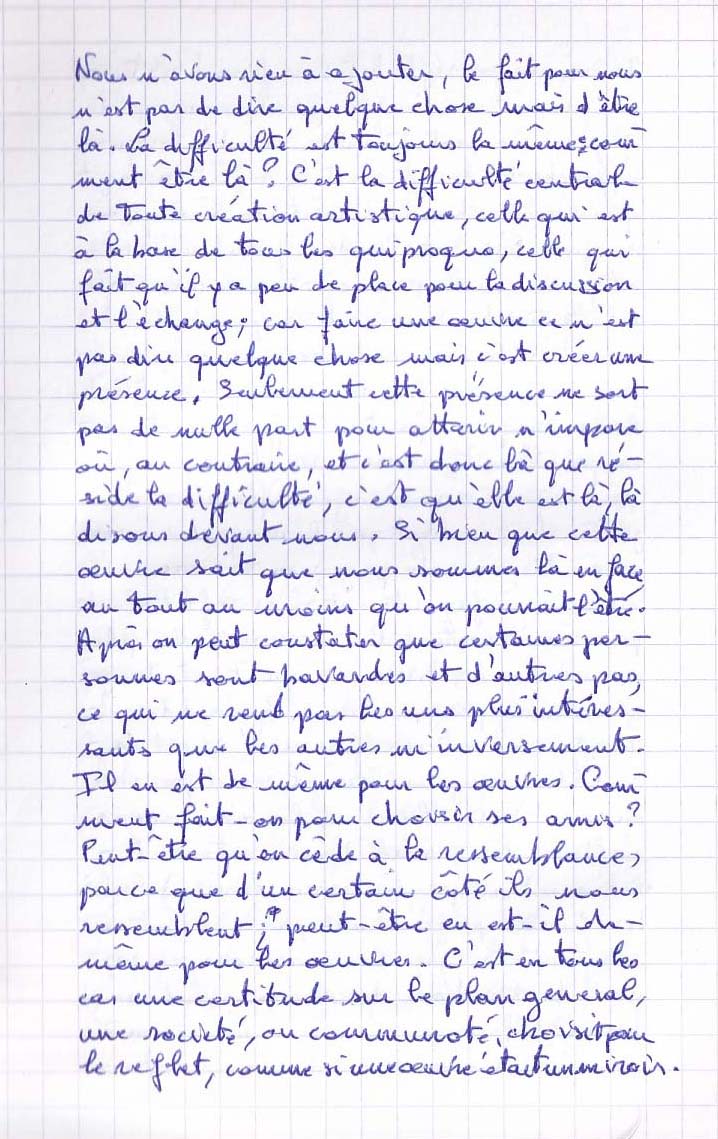 Nous n'avons rien à ajouter, le fait pour nous
n'est pas de dire quelque chose mais d'être
là. La difficulté est toujours la même : com
ment être là ? C'est la difficulté centrale
de toute création artistique, celle qui est
à la base de tous les quiproquo, celle qui
fait qu'il y a peu de place pour la discussion
et l'échange ; car faire une œuvre ce n'est
pas dire quelque chose mais c'est créer une
présence. Seulement cette présence ne sort
pas de nulle part pour atterir n'impore
où, au contraire, et c'est donc là que ré-
side la difficulté, c'est qu'elle est là, là
disons devant nous. Si bien que cette
œuvre sait que nous sommes là en face
au tout au moins qu'on pourrait l'être.
Après on peut constater que certaines per-
sonnes sont bavardes et d'autres pas,
ce qui ne rend pas les uns plus intéres-
sants que les autres ni inversement.
Il en est de même pour les œuvres. Com
ment fait-on pour choisir ses amis ?
Peut-être qu'on cède à la ressemblance,
parce que d'un certain côté ils nous
ressemblent ; peut-être en est-il de-
même pour les œuvres. C'est en tous les
cas une certitude sur le plan general,
une société, ou communoté, choisit pour
le reflet, comme si une œuvre était un miroir.